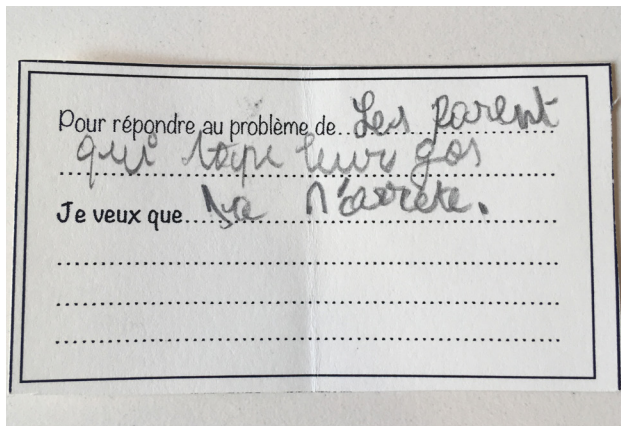 Pour répondre au problème de Les parent
qui tape leur gos
Je veux que sa s'arrète.